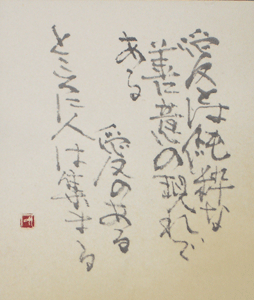 愛とは純粋な
善意の現れで
ある
愛のある
ところに人は集まる